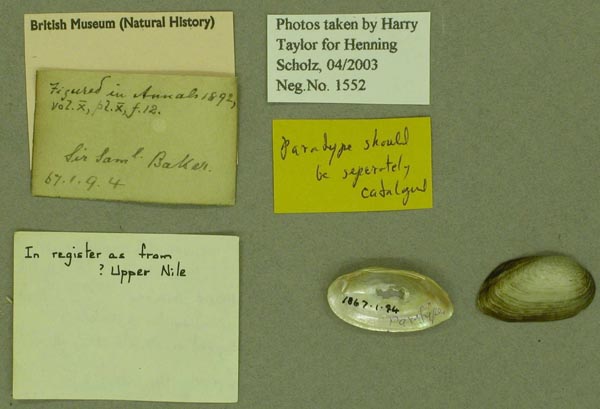 British Museum (Natural History)
Figured in Annals 1892,
vol. X, pl. X, f. 12.
Sir Saml. Baker.
67. 1. 9. 4
Photos taken by Harry
Taylor for Henning
Scholz, 04/2003
Neg.No. 1552
Paratype should
be seperately
catalogued
In register as from
? Upper Nile
1867·1·94
Paratype